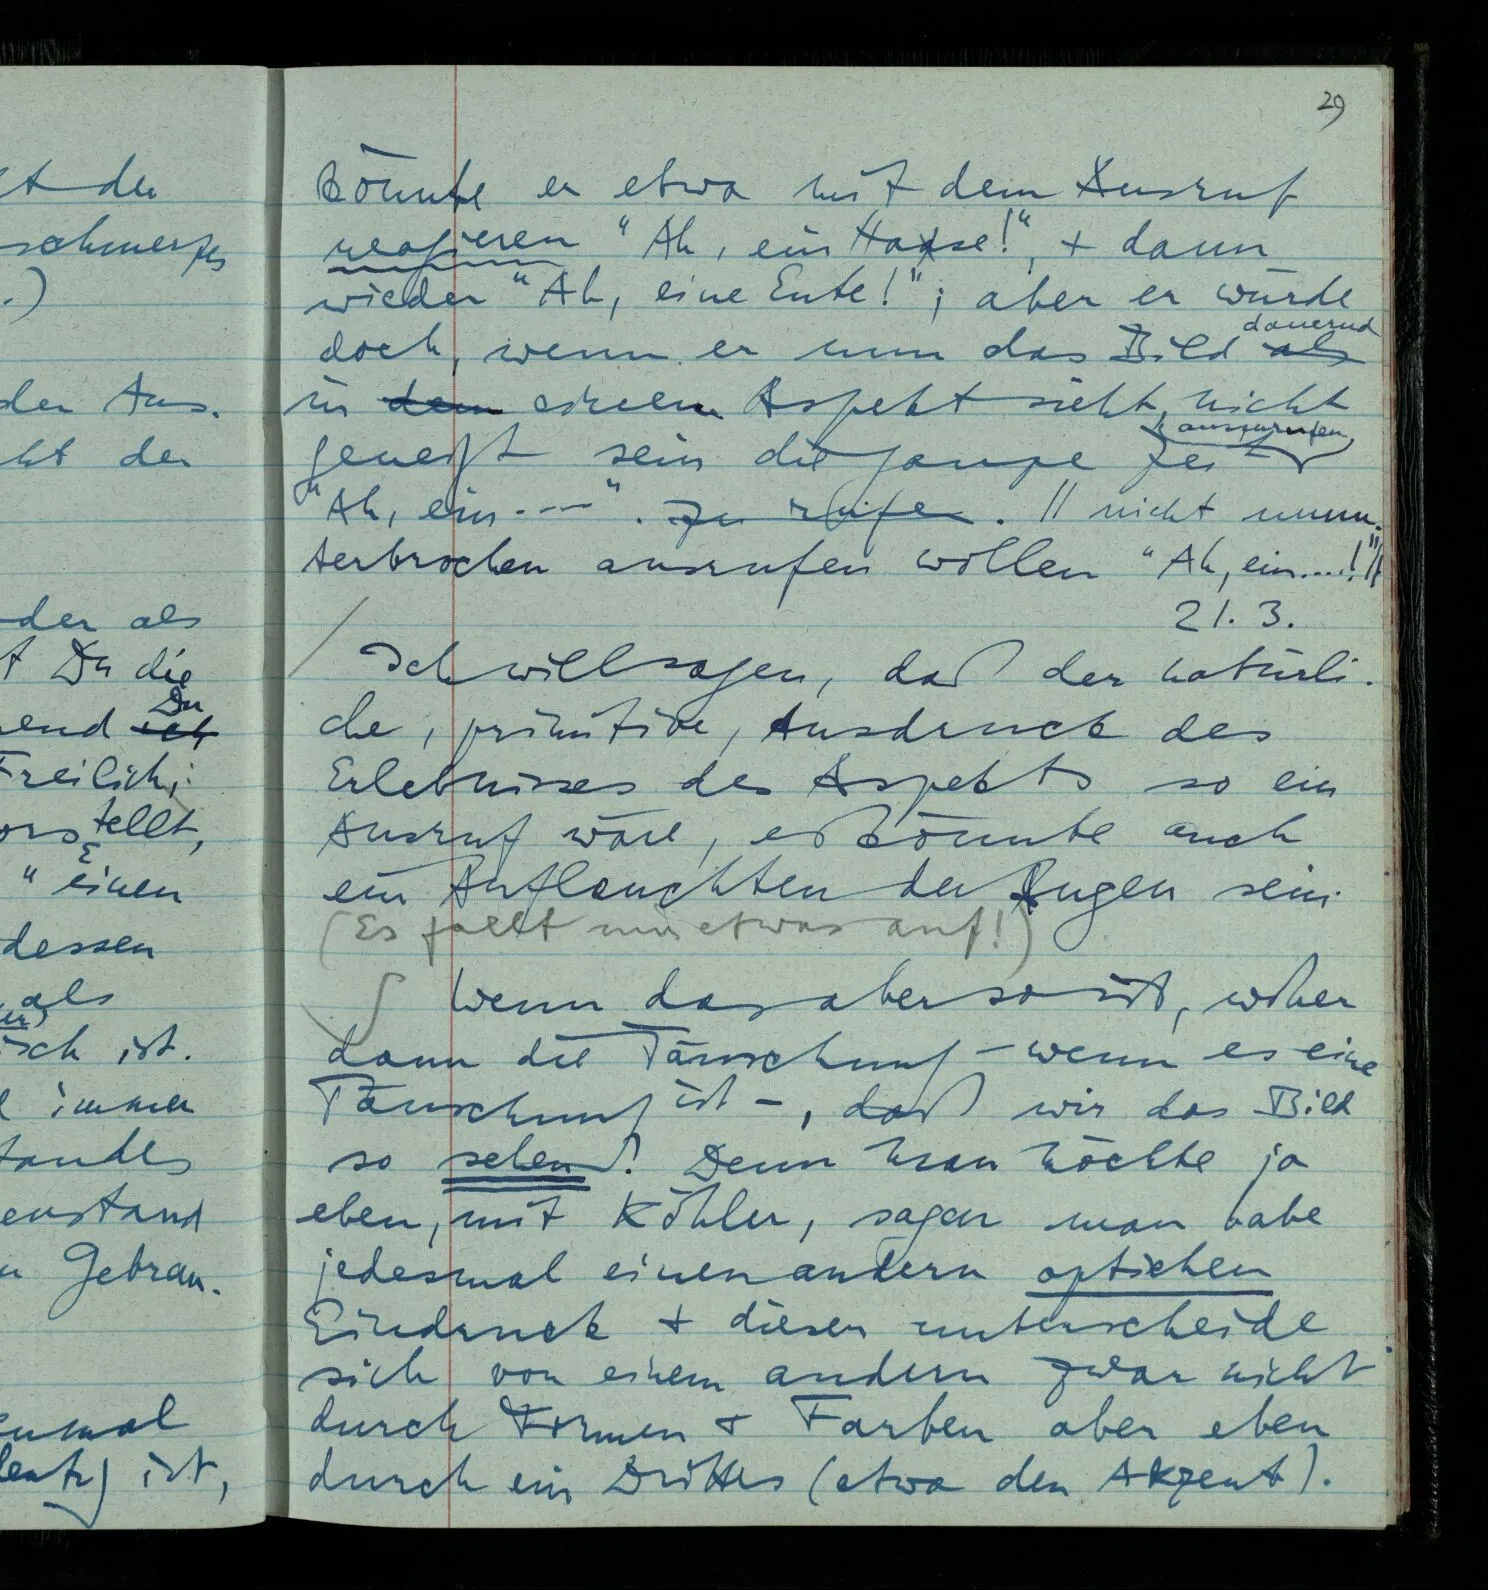 29
könnte er etwa mit dem Ausruf
reagieren "Ah, ein Hase!", + dann
wieder "Ah, eine Ente!"; aber er würde
doch, wenn er nun das Bild als dauernd
in dem einem Aspekt sieht, nicht
geneigt sein die ganze Zeit auszurufen
"Ah, ein ---". zu rufen. || nicht unun-
terbrochen ausrufen wollen "Ah, ein....!"||
21. 3.
/ Ich will sagen, daß der natürli-
che, primitive, Ausdruck des
Erlebnisses des Aspekts so ein
Ausruf wäre, es könnte auch
ein Aufleuchten der Augen sein.
(Es fällt mir etwas auf!)
Wenn das aber so ist, woher
dann die Täuschung – wenn es eine
Täuschung ist –, daß wir das Bild
so sehen? Denn man möchte ja
eben, mit Köhler, sagen man habe
jedesmal einen andern optischen
Eindruck + dieser unterscheide
sich von einem andern zwar nicht
durch Formen + Farben aber eben
durch ein Drittes (etwa den Akzent).
der
schmerzes
.)
der Aus-
der
der als
Du die
ich Du
Freilich,
"einen
dessen
als
ist.
immer
Gebrau-
ist,